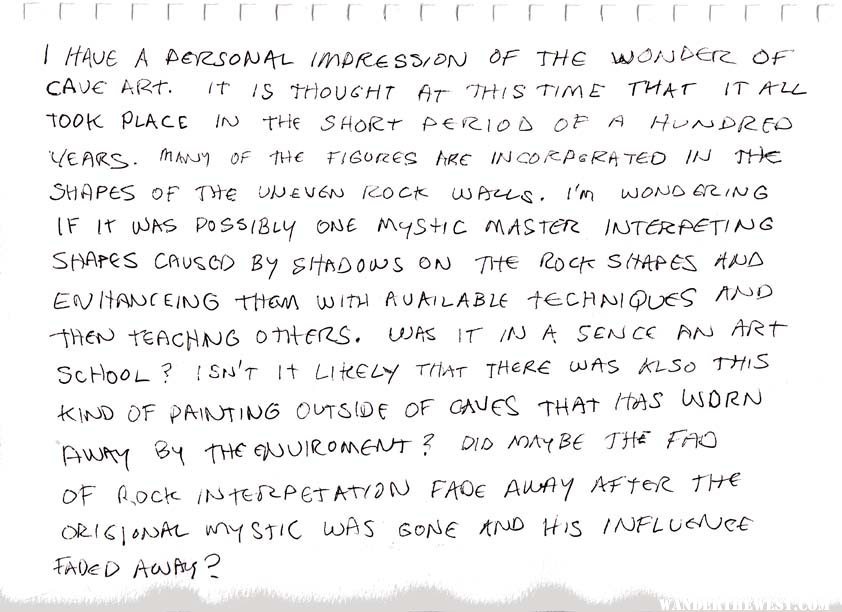 I HAVE A PERSONAL IMPRESSION OF THE WONDER OF
CAVE ART. IT IS THOUGHT AT THIS TIME THAT IT ALL
TOOK PLACE IN THE SHORT PERIOD OF A HUNDRED
YEARS. MANY OF THE FIGURES ARE INCORPORATED IN THE
SHAPES OF THE UNEVEN ROCK WALLS. I'M WONDERING
IF IT WAS POSSIBLY ONE MYSTIC MASTER INTERPETING
SHAPES CAUSED BY SHADOWS ON THE ROCK SHAPES AND
ENHANCEING THEM WITH AVAILABLE TECHNIQUES AND
THEN TEACHNG OTHERS. WAS IT IN A SENCE AN ART
SCHOOL? ISN'T IT LIKELY THAT THERE WAS KLSO THIS
KIND OF PAINTING OUTSIDE OF CAVES THAT HAS WORN
AWAY BY THE ENVIROMENT? DID MAYBE THE FAD
OF ROCK INTERPETATION FADE AWAY AFTER THE
ORIGIONAL MYSTIC WAS GONE AND HIS INFLUENCE
FADED AWAY?
WANDERTHEWEST.COM